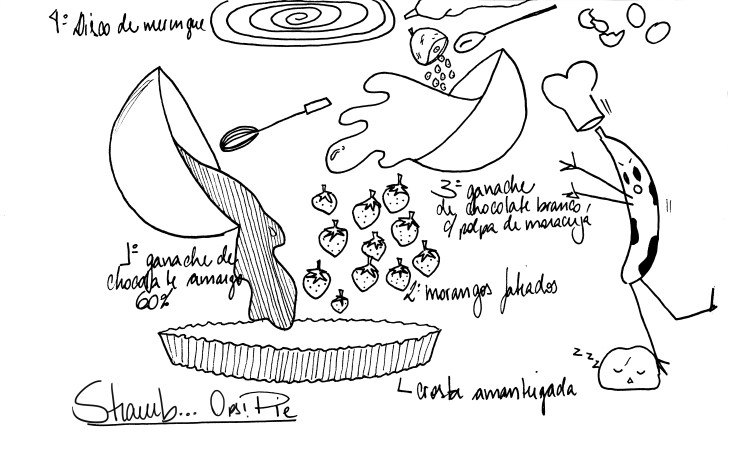 4º Disco de merengue
3º ganache
de chocolate branco,
c/ polpa de maracujá
1º ganache de
chocolate amargo
60%
2º morangos fatiados
z z z
crosta amanteigada
Straub... Ops! Pie